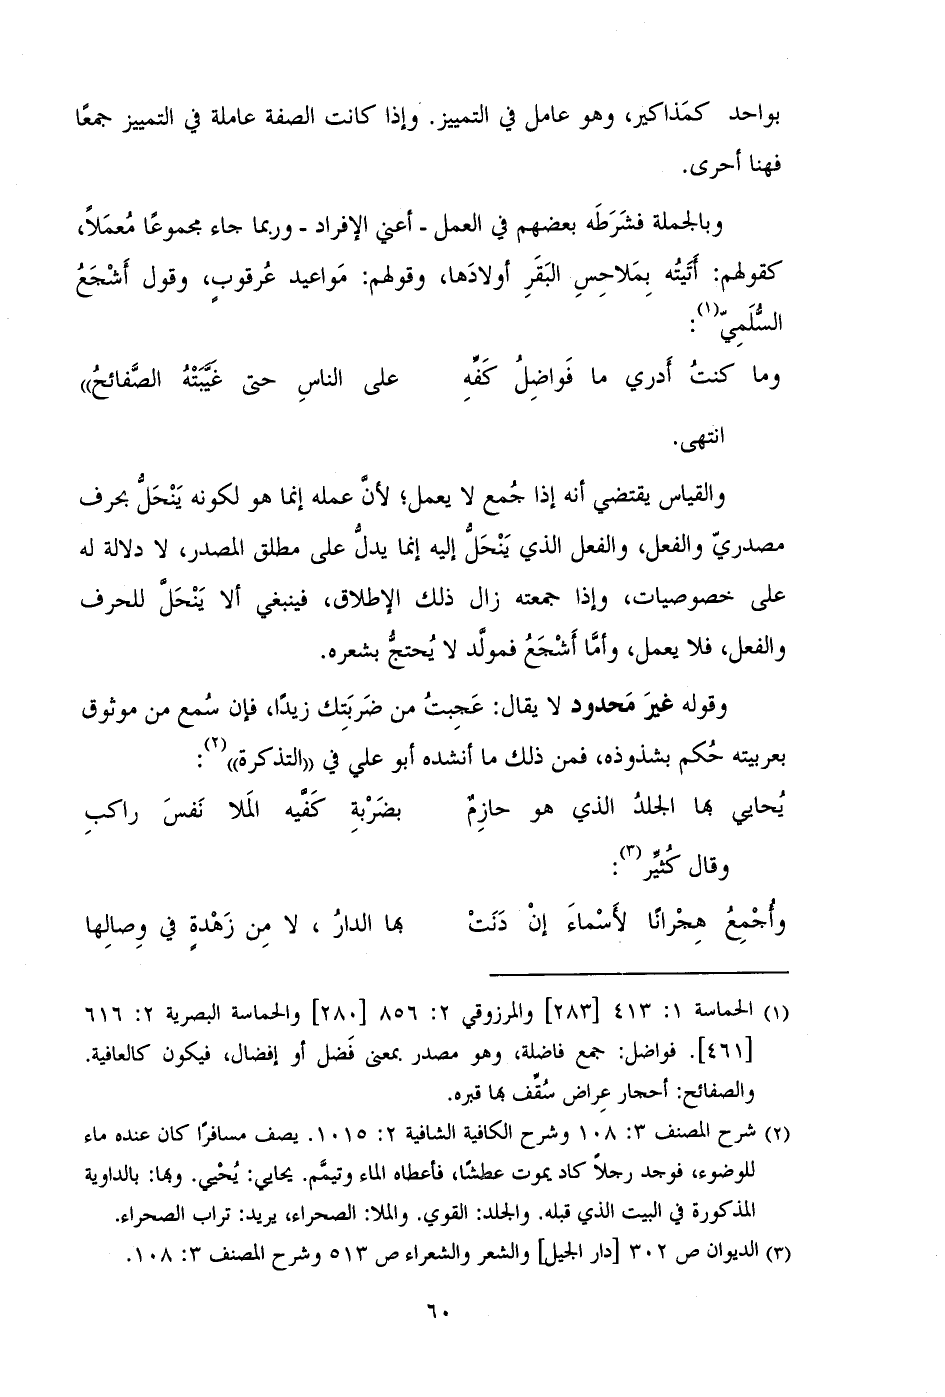 بواحد كمَذاكير، وهو عامل في التمييز. وإذا كانت الصفة عاملة في التمييز جمعًا
فهنا أحرى.
وبالجملة فشَرَطَه بعضهم في العمل - أعني الإفراد - وربما جاء مجموعًا مُعمَلاً،
كقولهم: أَتَيتُه بِمَلاحِسِ البَقَرِ أولادَها، وقولهم: مَواعيد عُرقوبٍ، وقول أَشْجَعُ
السُّلَمِيّ(١):
وما كنتُ أَدري ما فَواضِلُ كَفِّهِ على الناسِ حتى غَيَّبَتْهُ الصَّفائحُ))
انتهى.
والقياس يقتضي أنه إذا جُمع لا يعمل؛ لأنَّ عمله إنما هو لكونه يَنْحَلُّ بحرف
مصدريّ والفعل، والفعل الذي يَنْحَلُّ إليه إنما يدلُّ على مطلق المصدر، لا دلالة له
على خصوصيات، وإذا جمعته زال ذلك الإطلاق، فينبغي ألا يَنْحَلَّ للحرف
والفعل، فلا يعمل، وأمَّا أَشْجَعُ فمولَّد لا يُحتجُّ بشعره.
وقوله غيرَ مَحدود لا يقال: عَجبتُ من ضَرَبَتِك زيدًا، فإن سُمع من موثوق
بعربيته حُكم بشذوذه، فمن ذلك ما أنشده أبو علي في ((التذكرة))(٢):
يُحايي بها الجلدُ الذي هو حازِمٌ بضَرْبةِ كَفَّيه المَلا نَفسَ راكبِ
وقال كُثيِّر(٣):
وأُجْمِعُ هِجْرانًا لأَسْماءَ إنْ دَنَتْ بها الدارُ ، لا مِن زَهْدةٍ في وِصالِها
(١) الحماسة ١: ٤١٣ [٢٨٣] والمرزوقي ٢: ٨٥٦ [٢٨٠] والحماسة البصرية ٢: ٦١٦
[٤٦١]. فواضل: جمع فاضلة، وهو مصدر بمعنى فَضل أو إفضال، فيكون كالعافية.
والصفائح: أحجار عِراض سُقِّف بها قبره.
(٢) شرح المصنف ٣: ١٠٨ وشرح الكافية الشافية ٢: ١٠١٥. يصف مسافرًا كان عنده ماء
للوضوء، فوجد رجلاً كاد يموت عطشًا، فأعطاه الماء وتيمَّم. يحايي: يُحْيي. وبها: بالداوية
المذكورة في البيت الذي قبله. والجلد: القوي. والملا: الصحراء، يريد: تراب الصحراء.
(٣) الديوان ص ٣٠٢ [دار الجيل] والشعر والشعراء ص ٥١٣ وشرح المصنف ٣: ١٠٨.
٦٠